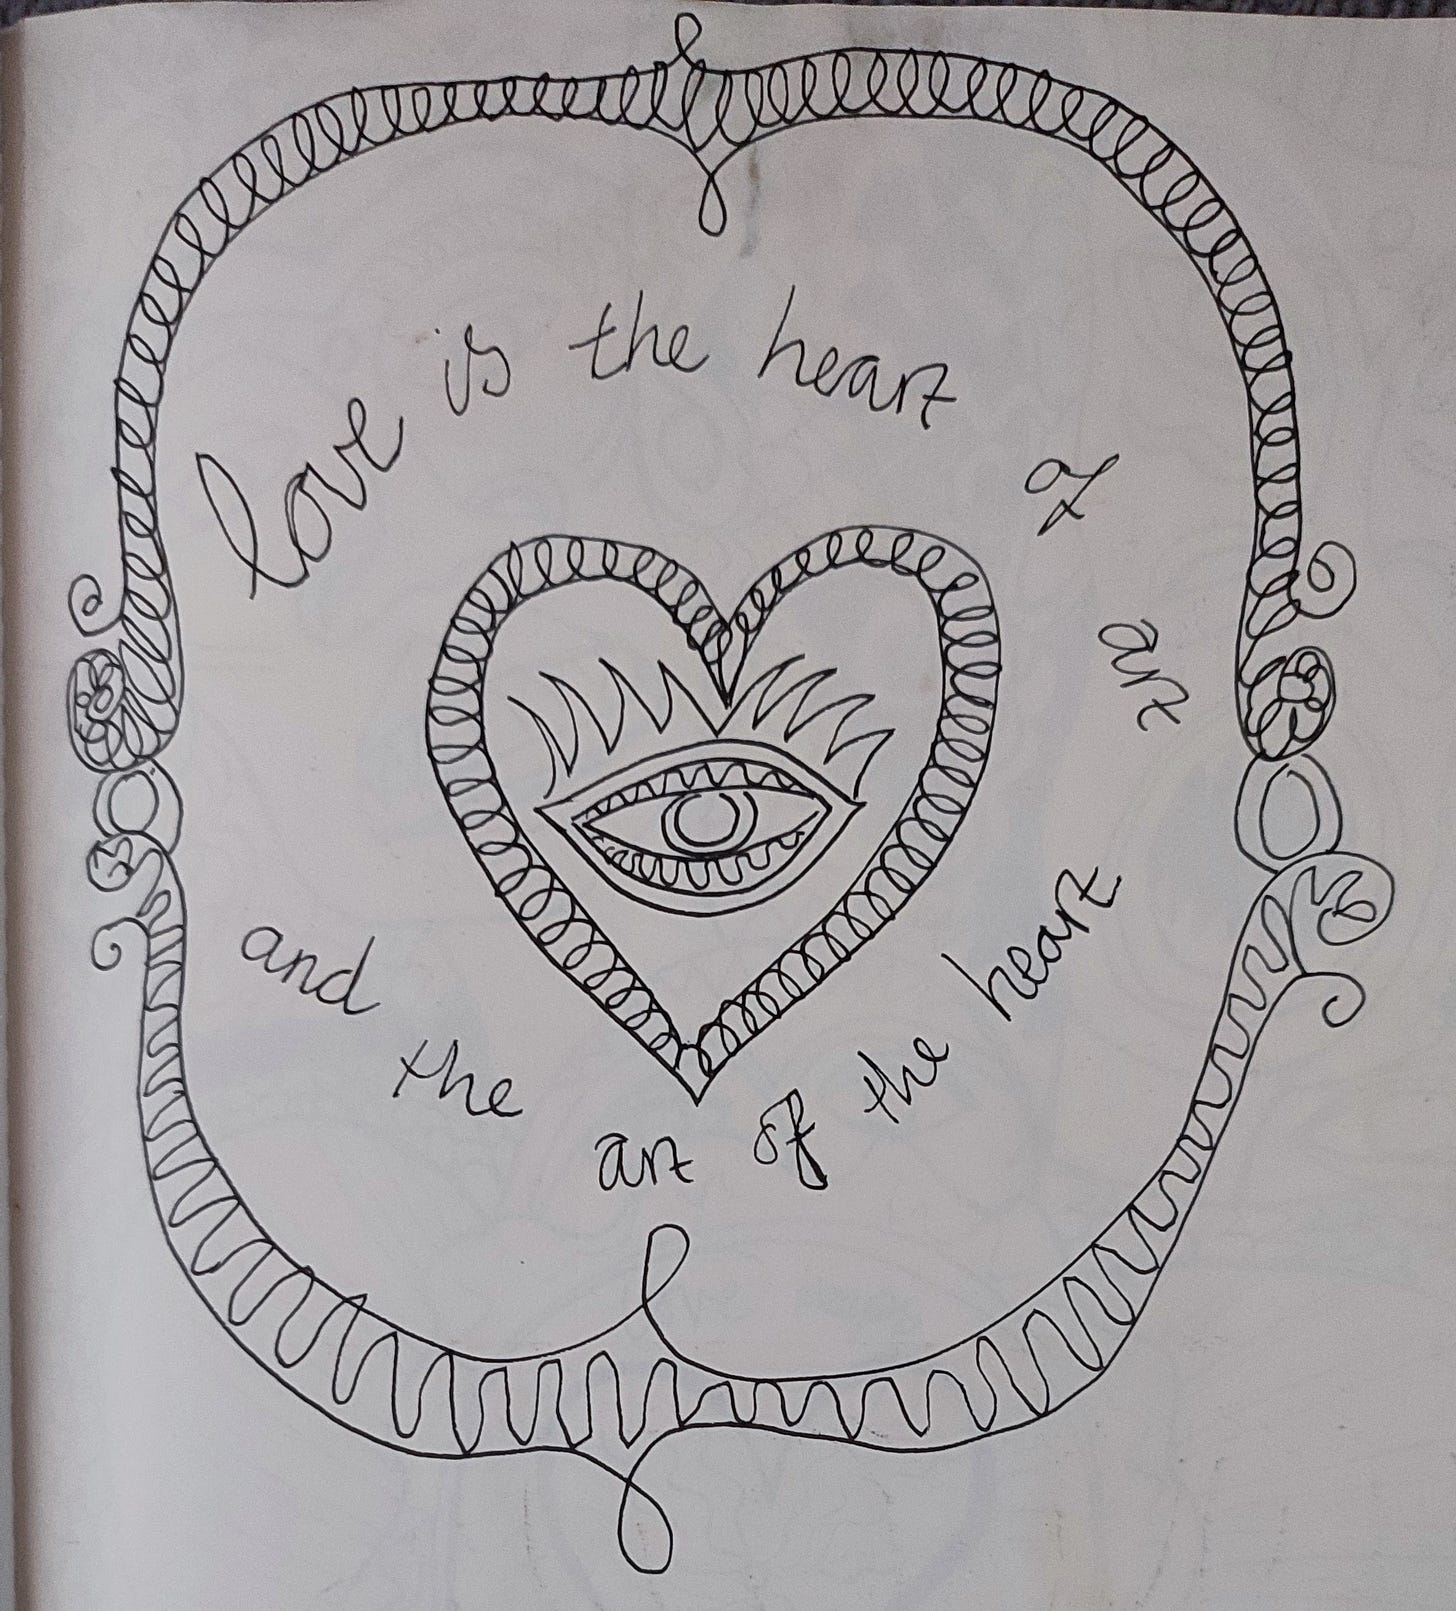 love is the heart of art
and the art of the heart